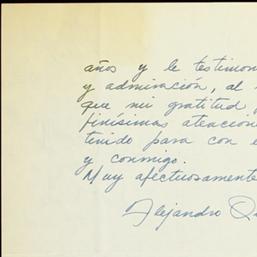 años y le testimon
y admiración, al
que mi gratitud
finísimas atencio
tenido para con e
y conmigo.
Muy afectuosamente
Alejandro